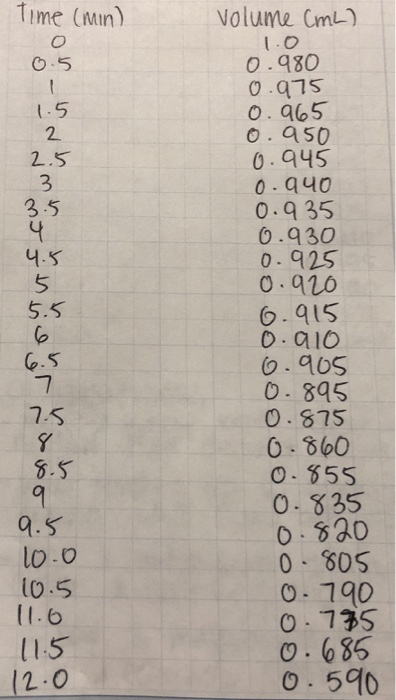 Time (min) Volume (mL)
0 1.0
0.5 0.980
1 0.975
1.5 0.965
2 0.950
2.5 0.945
3 0.940
3.5 0.935
4 0.930
4.5 0.925
5 0.920
5.5 0.915
6 0.910
6.5 0.905
7 0.895
7.5 0.875
8 0.860
8.5 0.855
9 0.835
9.5 0.820
10.0 0.805
10.5 0.790
11.0 0.775
11.5 0.685
12.0 0.590